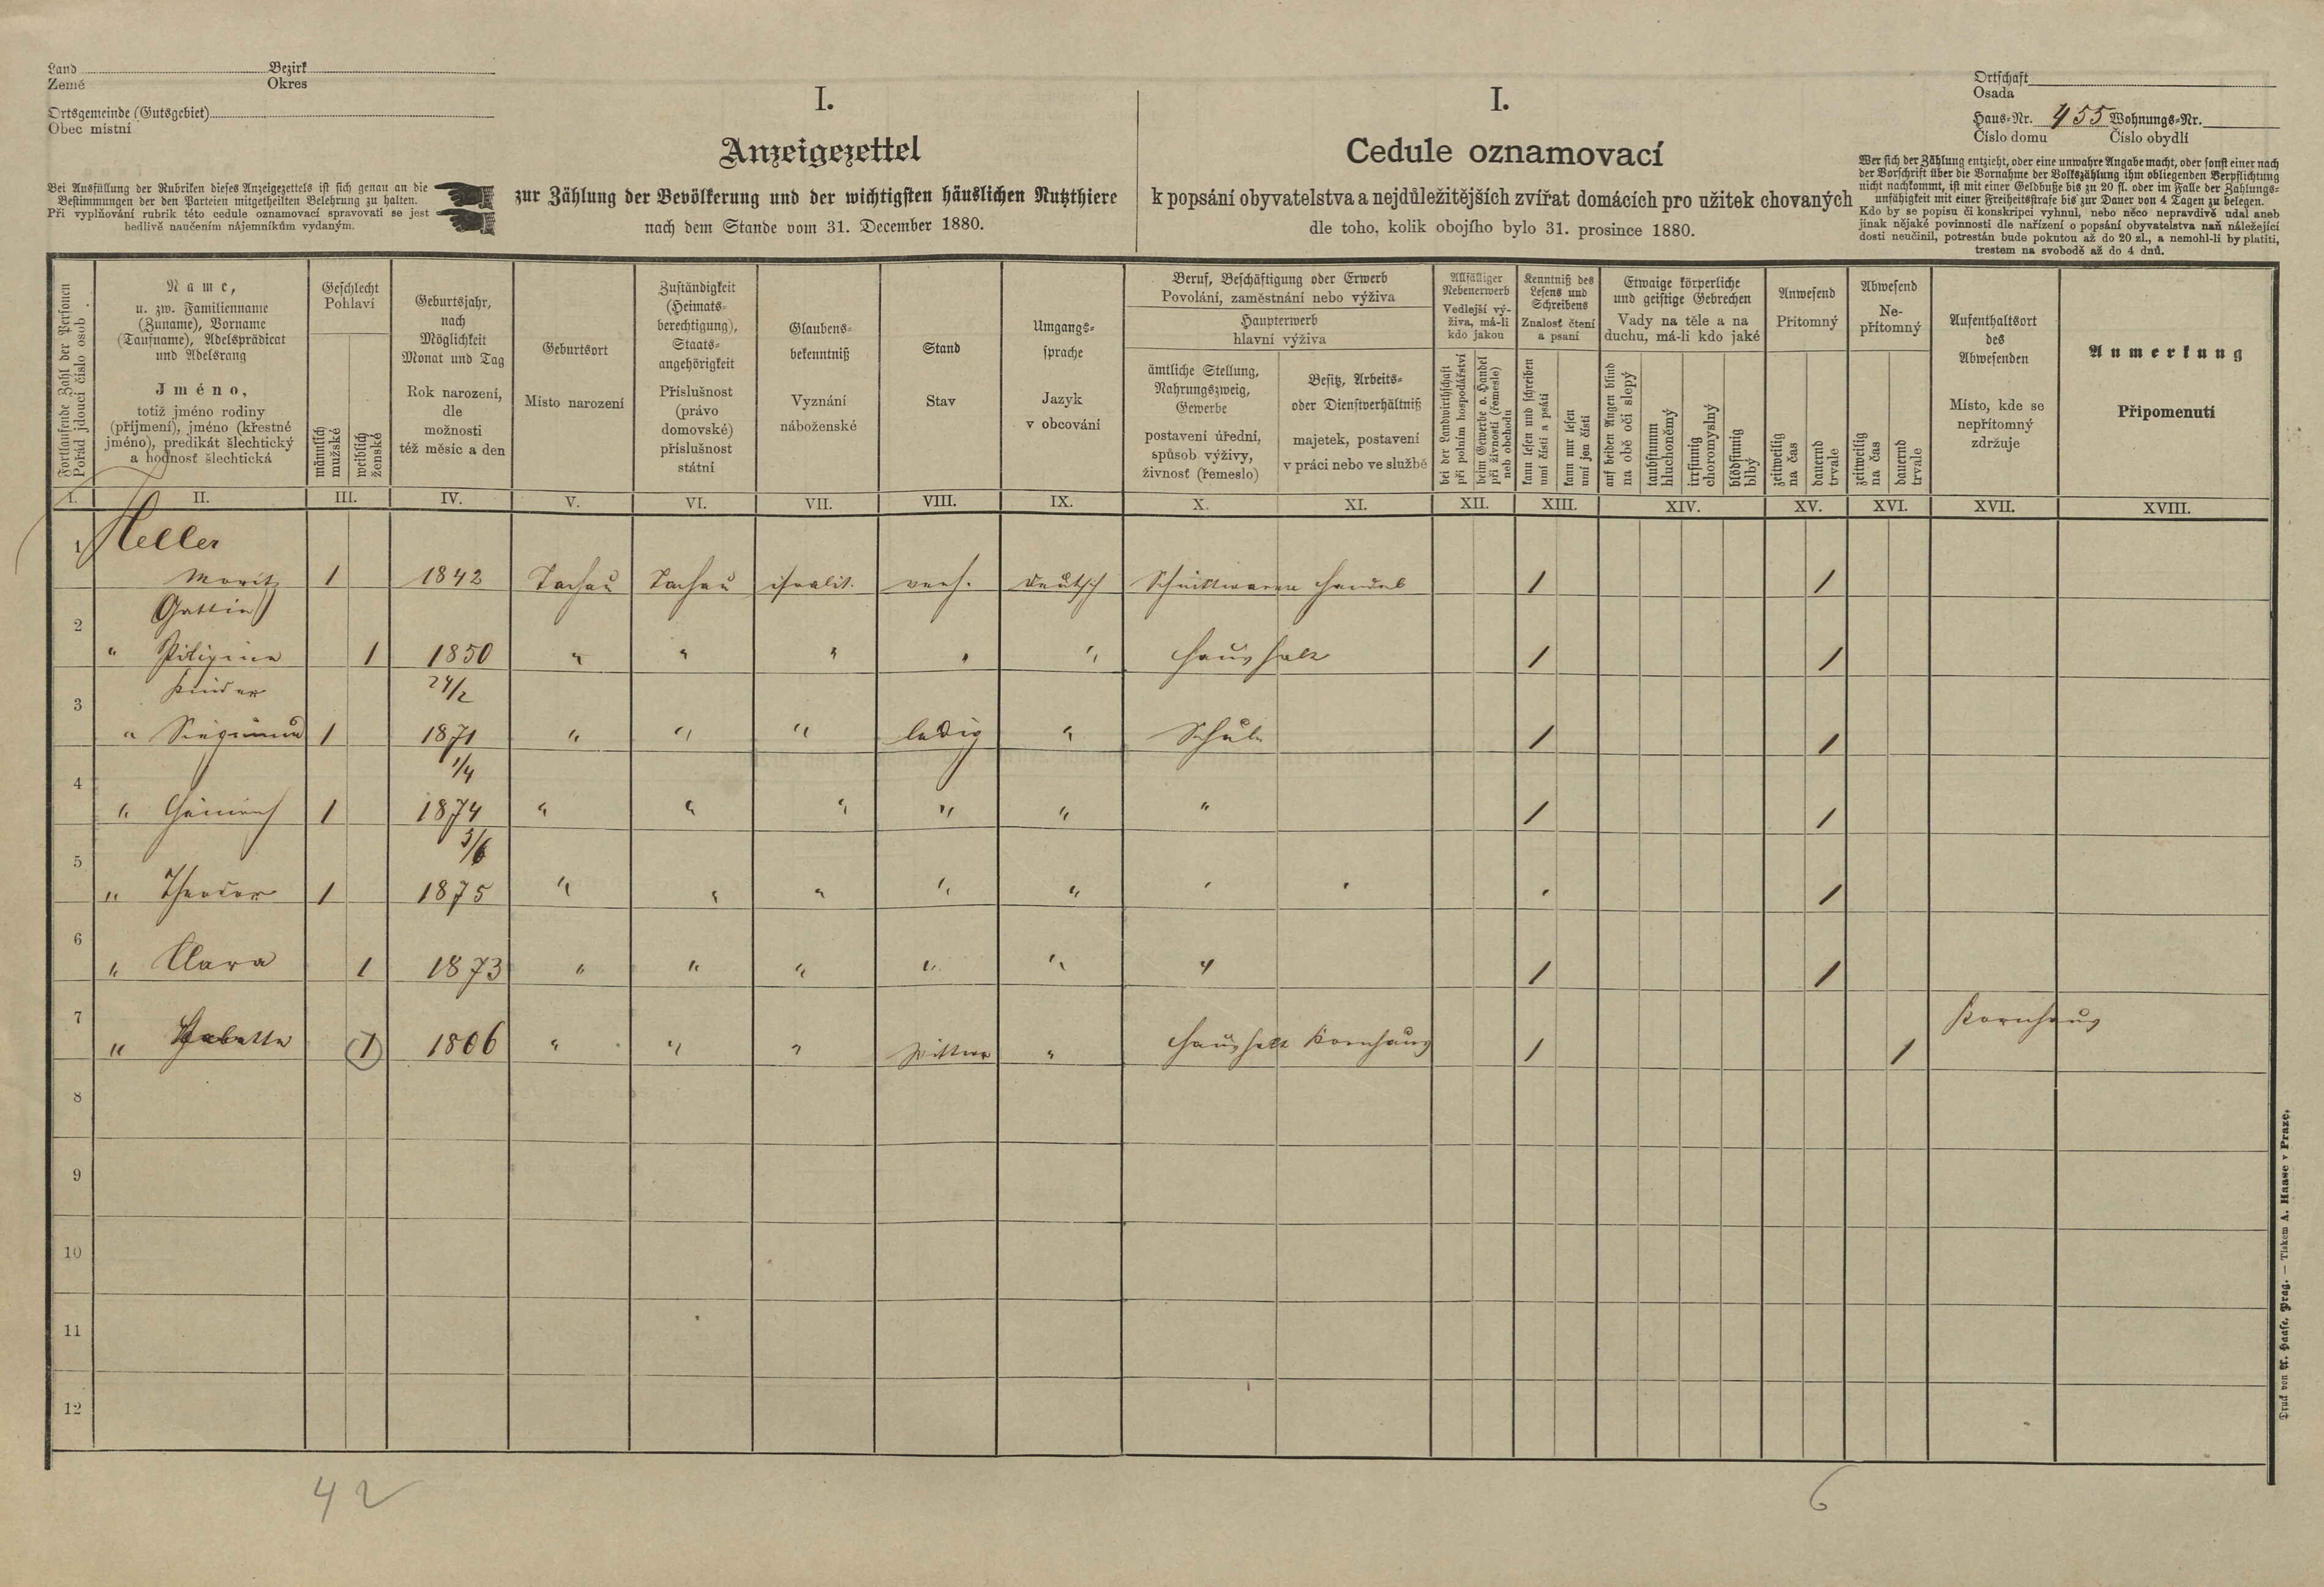 Land
Země
Bezirk
Okres
Ortsgemeinde (Gutsgebiet)
Obec místní
Bei Ausfüllung der Rubriken dieses Anzeigezettels ist sich genau an die
Bestimmungen der den Parteien mitgetheilten Belehrung zu halten.
Při vyplňování rubrik této cedule oznamovací spravovati se jest
bedlivě naučením nájemníkům vydaným.
I.
Anzeigezettel
zur Zählung der Bevölkerung und der wichtigsten häuslichen Nutzthiere
nach dem Stande vom 31. December 1880.
I.
Cedule oznamovací
k popsání obyvatelstva a nejdůležitějších zvířat domácích pro užitek chovaných
dle toho, kolik obojího bylo 31. prosince 1880.
Ortschaft
Osada
Haus-Nr. 455 Wohnungs-Nr.
Číslo domu Číslo obydlí
Wer sich der Zählung entzieht, oder eine unwahre Angabe macht, oder sonst einer nach
der Vorschrift über die Vornahme der Volkszählung ihm obliegenden Verpflichtung
nicht nachkommt, ist mit einer Geldbuße bis zu 20 fl. oder im Falle der Zahlungs-
unfähigkeit mit einer Freiheitsstrafe bis zur Dauer von 4 Tagen zu belegen.
Kdo by se popisu či konskripci vyhnul, nebo něco nepravdivě udal aneb
jinak nějaké povinnosti dle nařízení o popsání obyvatelstva naň náležející
dosti neučinil, potrestán bude pokutou až do 20 zl., a nemohl-li by platiti,
trestem na svobodě až do 4 dnů.
Fortlaufende Zahl der Personen
Pořád jdoucí číslo osob
Name,
u. zw. Familienname
(Zuname), Vorname
(Taufname), Adelsprädicat
und Adelsrang
Jméno,
totiž jméno rodiny
(příjmení), jméno (křestné
jméno), predikát šlechtický
a hodnosť šlechtická
Geschlecht
Pohlaví
männlich
mužské
weiblich
ženské
Geburtsjahr,
nach
Möglichkeit
Monat und Tag
Rok narození,
dle
možnosti
též měsíc a den
Geburtsort
Místo narození
Zuständigkeit
(Heimats-
berechtigung),
Staats-
angehörigkeit
Příslušnost
(právo
domovské)
příslušnost
státní
Glaubens-
bekenntniß
Vyznání
náboženské
Stand
Stav
Umgangs-
sprache
Jazyk
v obcování
Beruf, Beschäftigung oder Erwerb
Povolání, zaměstnání nebo výživa
Haupterwerb
hlavní výživa
ämtliche Stellung,
Nahrungszweig,
Gewerbe
postavení úřední,
spůsob výživy,
živnosť (řemeslo)
Besitz, Arbeits-
oder Dienstverhältniß
majetek, postavení
v práci nebo ve službě
Allfälliger
Nebenerwerb
Vedlejší vý-
živa, má-li
kdo jakou
bei der Landwirthschaft
při polním hospodářství
beim Gewerbe o. Handel
při živnosti (řemeslo)
neb obchodu
Kenntniß des
Lesens und
Schreibens
Znalosť čtení
a psaní
kann lesen und schreiben
umí čísti a psáti
kann nur lesen
umí jen čísti
Etwaige körperliche
und geistige Gebrechen
Vady na těle a na
duchu, má-li kdo jaké
auf beiden Augen blind
na obě oči slepý
taubstumm
hluchoněmý
irrsinnig
choromyslný
blödsinnig
blbý
Anwesend
Přítomný
zeitweilig
na čas
dauernd
trvale
Abwesend
Ne-
přítomný
zeitweilig
na čas
dauernd
trvale
Aufenthaltsort
des
Abwesenden
Místo, kde se
nepřítomný
zdržuje
Anmerkung
Připomenutí
I. II. III. IV. V. VI. VII. VIII. IX. X. XI. XII. XIII. XIV. XV. XVI. XVII. XVIII.
1 Heller
Moritz 1 1842 Tachau Tachau israelit. verh. deutsch Schnittwaren Handel 1 1
2 Gattin
" 1 1850 " " " " " Haushalt 1 1
Kinder 24/2
3
" Siegmund 1 1871 " " " ledig " Schule 1 1
1/4
4
" Heinrich 1 1874 " " " " " " 1 1
3/6
5
" Theodor 1 1875 " " " " " " " " 1
6
" Clara 1 1873 " " " " " " 1 1
7 Kornhaus
" Babette 1 1806 " " " Wittwe " Haushalt Kornhaus 1 1
8
9
10
11
12
42
6
Druck von A. Haase, Prag. — Tiskem A. Haase v Praze.